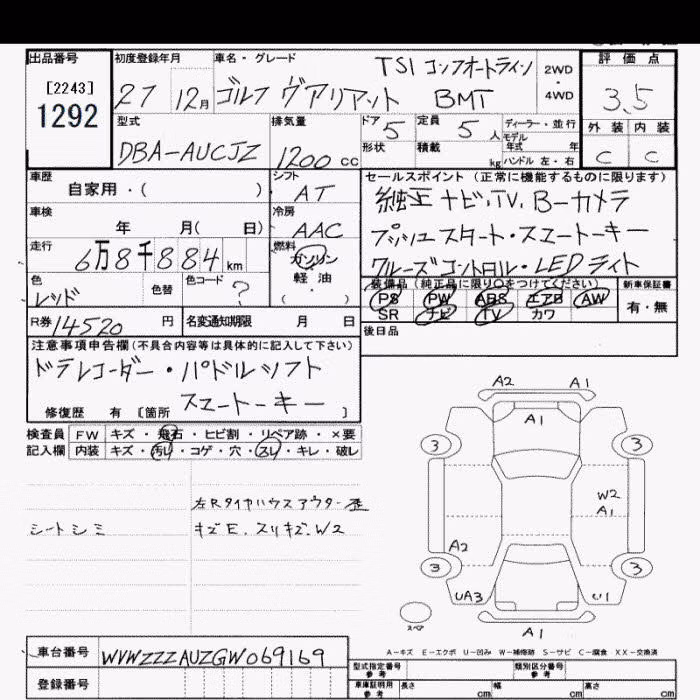 出品番号 初度登録年月 車名・グレード 評価点
[2243]
1292
27 12月 ゴルフ ヴァリアット TSI コンフォートライン BMT
2WD ・ 4WD
3.5
型式 排気量 ドア 定員 ディーラー・並行
DBA-AUCJZ 1200 cc 5 5人
モデル年式 年
形状 積載 kg ハンドル 左・右
外装 内装
C C
車歴 シフト セールスポイント(正常に機能するものに限ります)
自家用・( ) AT
純正ナビ・TV、Bーカメラ
車検 冷房
年 月( 日) AAC
プッシュスタート・スマートーキー
走行 燃料
6万8千884km ガソリン・軽油
( ・ )
クルーズコントロル・LEDライト
色 色替 色コード
レッド ?
装備品(純正品に限り○をつけてください) 新車保証書
PS PW ABS エアB AW 有・無
SR ナビ TV カワ
R券 14520 円 名変通知期限 月 日
後日品
注意事項申告欄(不具合内容等は具体的に記入して下さい)
ドラレコーダー・パドルシフト
スマートーキー
修復歴 有 [箇所 ]
検査員 FW キズ・飛石・ヒビ割・リペア跡・×要
記入欄 内装 キズ・汚れ・コゲ・穴・スレ・キレ・破レ
左Rタイヤハウスアウター歪
シートシミ キズE、スリキズ、W2
A2 A1
A1
3 3
W2
A1
A2
3 3
UA3 U1
スペア
A1
A-キズ E-エクボ U-凹み W-補修跡 S-サビ C-腐食 XX-交換済
車台番号 WVWZZZAUZGW069169
登録番号
型式指定番号 参考 類別区分番号 参考
車庫証明用 参考 長さ cm 幅 cm 高さ cm